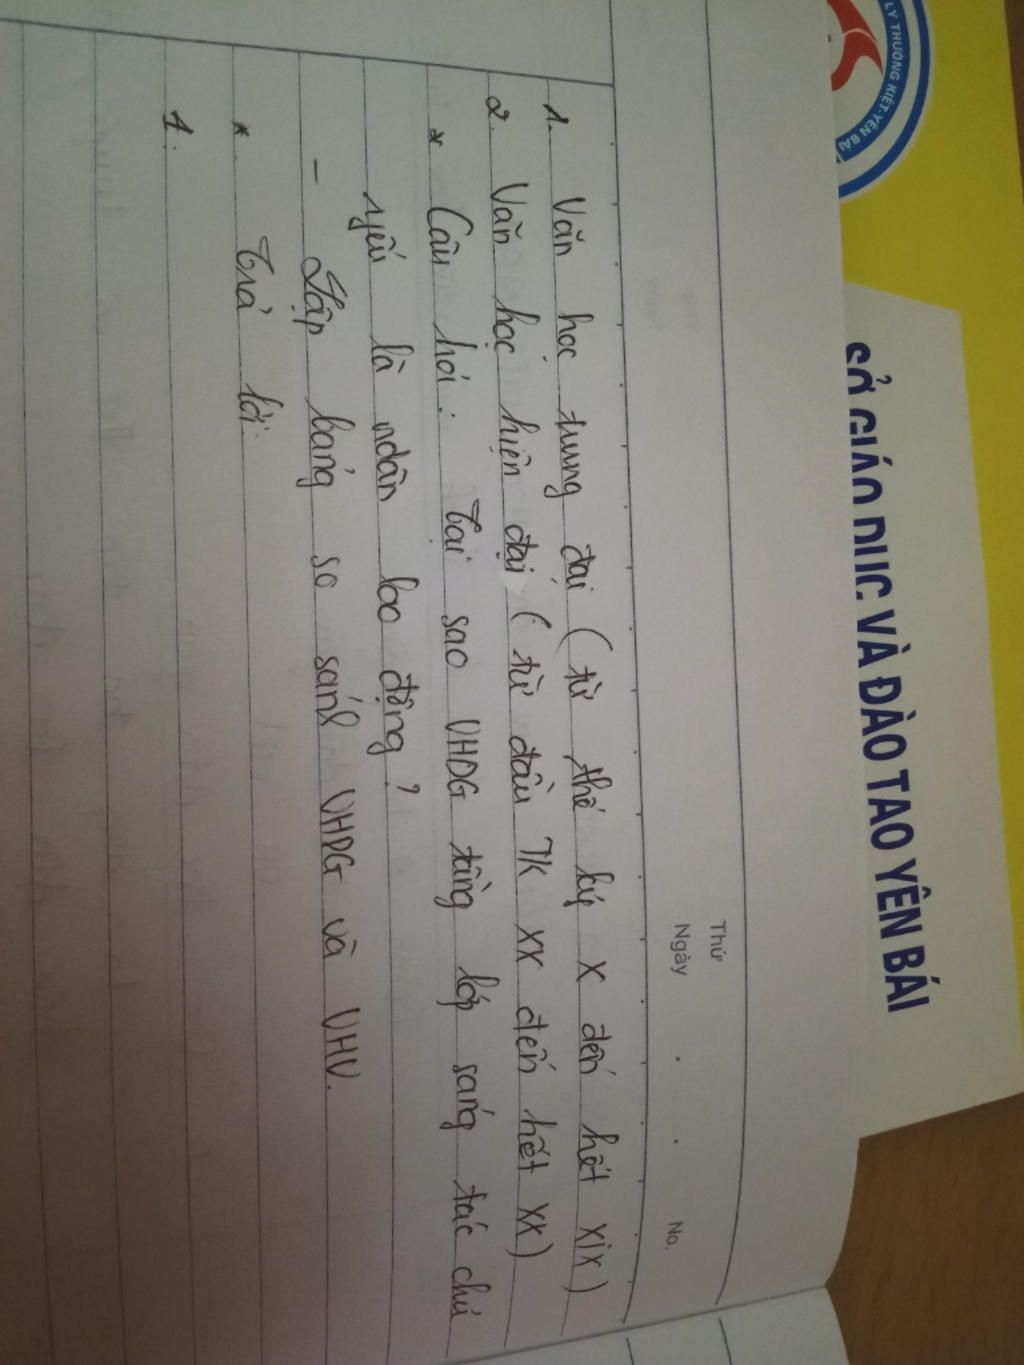 LÝ THƯỜNG KIỆT-YÊN BÁI
SỞ GIÁO DỤC VÀ ĐÀO TẠO YÊN BÁI
Thứ
Ngày . . No.
1. Văn học trung đại (từ thế kỷ X đến hết XIX)
2. Văn học hiện đại (từ đầu TK XX đến hết XX)
* Câu hỏi: Tại sao VHDG tầng lớp sáng tác chủ
yếu là nhân dân lao động?
- Lập bảng so sánh VHDG và VHV.
* Trả lời:
1.